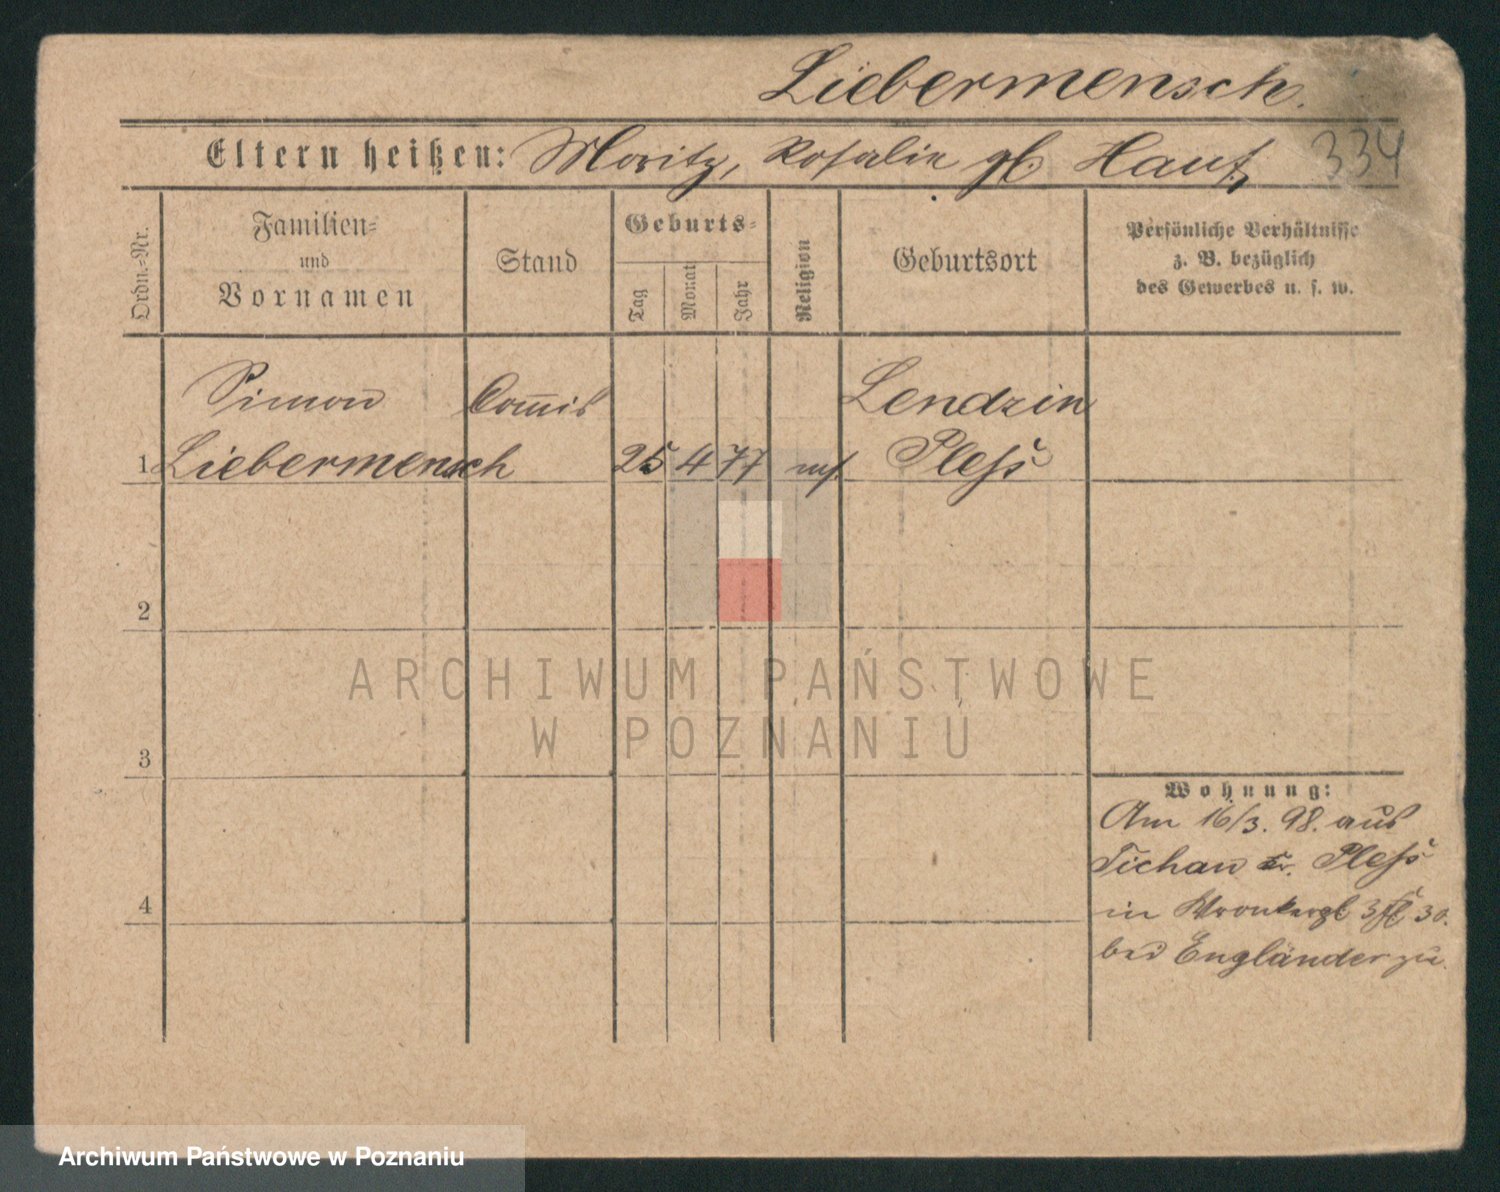 Liebermensch.
Eltern heißen: Moritz, Rosalie gb. Hauf,
334
Ordn.=Nr.
Familien=
und
Vornamen
Stand
Geburts=
Tag
Monat
Jahr
Religion
Geburtsort
Persönliche Verhältnisse
z. B. bezüglich
des Gewerbes u. s. w.
Simon Com̅is Lendzin
1 Liebermensch 25 4 77 Pleß
2
ARCHIWUM PAŃSTWOWE
W POZNANIU
3
Wohnung:
Am 16/3. 98. aus
Tichau Kr. Pleß
4
in 30.
bei Engländer zu.
Archiwum Państwowe w Poznaniu